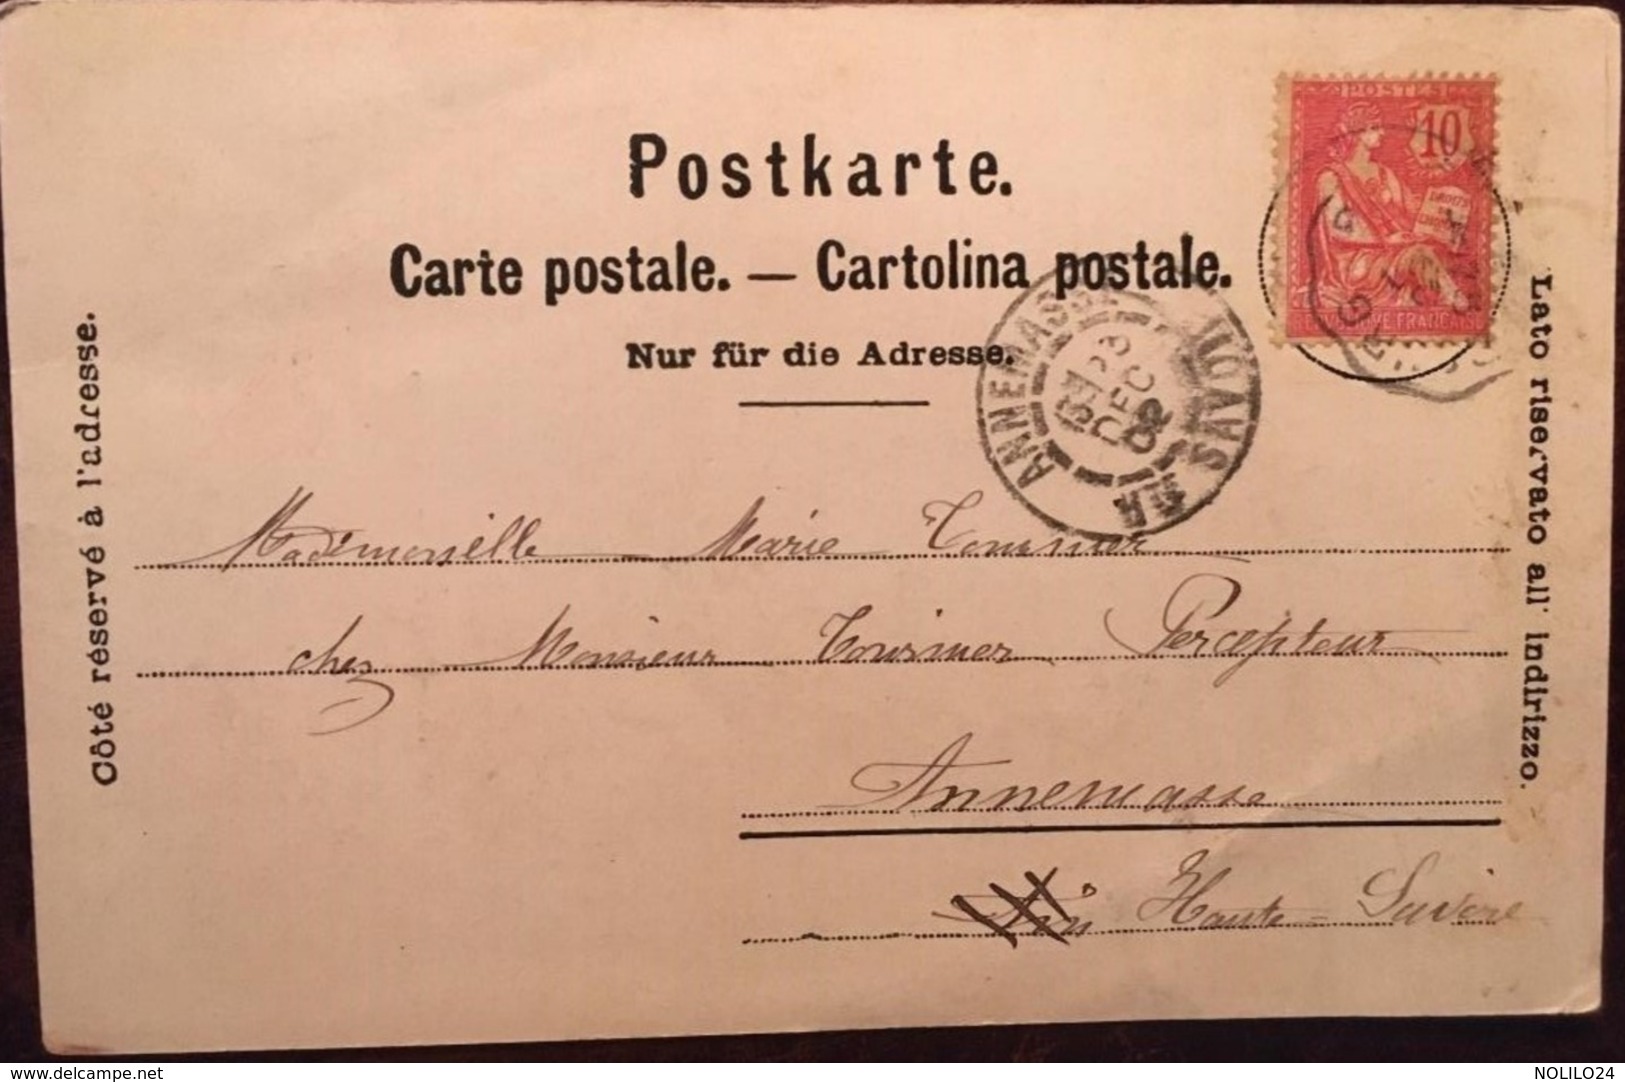 POSTES
10
RÉPUBLIQUE FRANÇAISE
Postkarte.
Carte postale. — Cartolina postale.
Nur für die Adresse.
Côté réservé à l'adresse.
Lato riservato all' indirizzo.
ANNEMASSE
23
DEC
02
HTE SAVOIE
Mademoiselle Marie Tournier
chez Monsieur Tournier Percepteur
Annemasse
Haute-Savoie
www.delcampe.net
NOLILO24